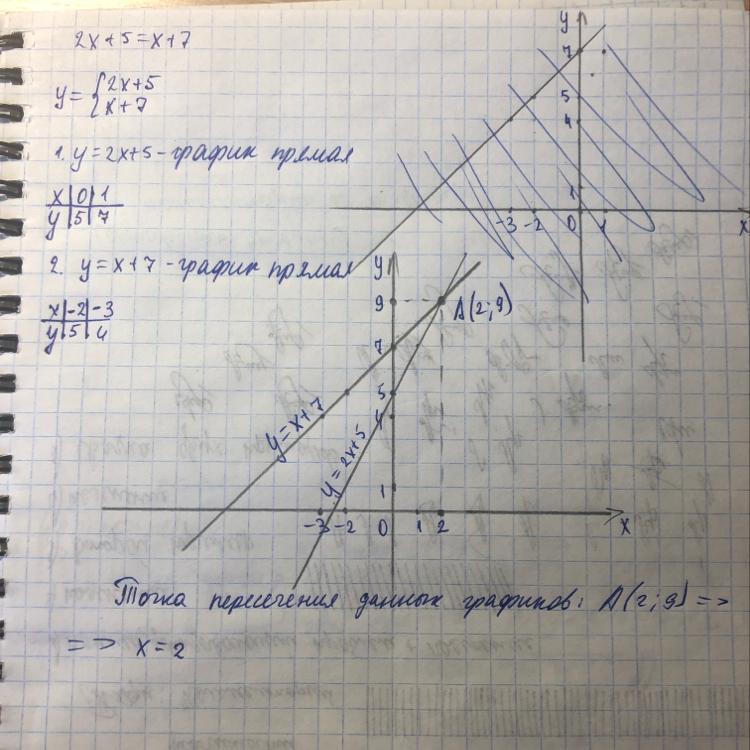 2x+5=x+7
y={2x+5
x+7
1. y=2x+5 - график прямая
x|0|1
y|5|7
2. y=x+7 - график прямая
x|-2|-3
y|5|4
y
7
5
4
1
-3 -2 0 1 x
y
9
A(2;9)
7
5
4
y=x+7
y=2x+5
1
-3 -2 0 1 2 x
Точка пересечения данных графиков: A(2;9) =>
=> x=2